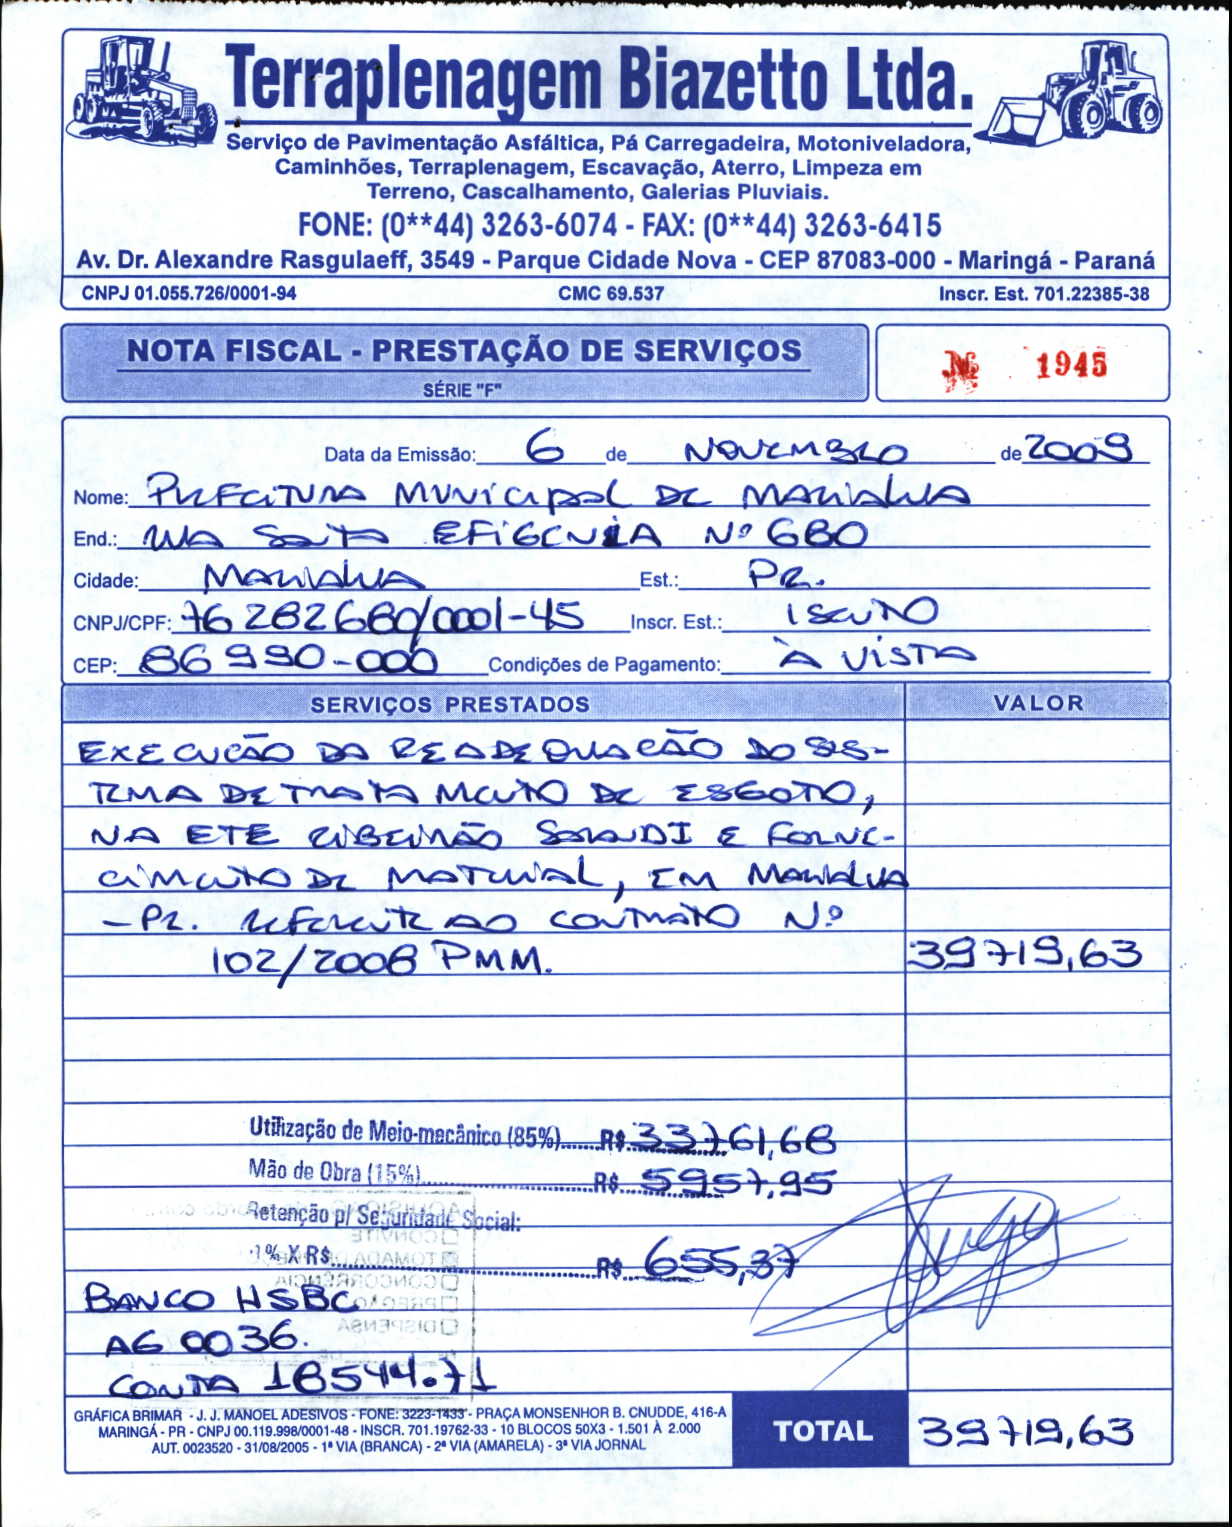 Terraplenagem Biazetto Ltda.
Serviço de Pavimentação Asfáltica, Pá Carregadeira, Motoniveladora,
Caminhões, Terraplenagem, Escavação, Aterro, Limpeza em
Terreno, Cascalhamento, Galerias Pluviais.
FONE: (0**44) 3263-6074 - FAX: (0**44) 3263-6415
Av. Dr. Alexandre Rasgulaeff, 3549 - Parque Cidade Nova - CEP 87083-000 - Maringá - Paraná
CNPJ 01.055.726/0001-94 CMC 69.537 Inscr. Est. 701.22385-38
NOTA FISCAL - PRESTAÇÃO DE SERVIÇOS
SÉRIE "F"
Nº 1945
Data da Emissão: 6 de NOVEMBRO de 2009
Nome: PREFEITURA MUNICIPAL DE MARIALVA
End.: RUA SANTA EFIGENIA Nº 680
Cidade: MARIALVA Est.: PR.
CNPJ/CPF: 76282680/0001-45 Inscr. Est.: ISENTO
CEP: 86990-000 Condições de Pagamento: À VISTA
SERVIÇOS PRESTADOS VALOR
EXECUCÃO DA READEQUACÃO DO SIS-
TEMA DE TRATAMENTO DE ESGOTO,
NA ETE RIBEIRÃO SARANDI E FORNE-
CIMENTO DE MATERIAL, EM MARIALVA
-PR. REFERENTE AO CONTRATO Nº
102/2008 PMM. 39719,63
Utilização de Meio-mecânico (85%)......R$ 33761,68
Mão de Obra (15%)......R$ 5957,95
Retenção p/ Seguridade Social:
% X R$......R$ 655,37
BANCO HSBC
AG 0036.
CONTA 18544.71
TOTAL 39719,63
GRÁFICA BRIMAR - J. J. MANOEL ADESIVOS - FONE: 3223-1433 - PRAÇA MONSENHOR B. CNUDDE, 416-A
MARINGÁ - PR - CNPJ 00.119.998/0001-48 - INSCR. 701.19762-33 - 10 BLOCOS 50X3 - 1.501 À 2.000
AUT. 0023520 - 31/08/2005 - 1ª VIA (BRANCA) - 2ª VIA (AMARELA) - 3ª VIA JORNAL